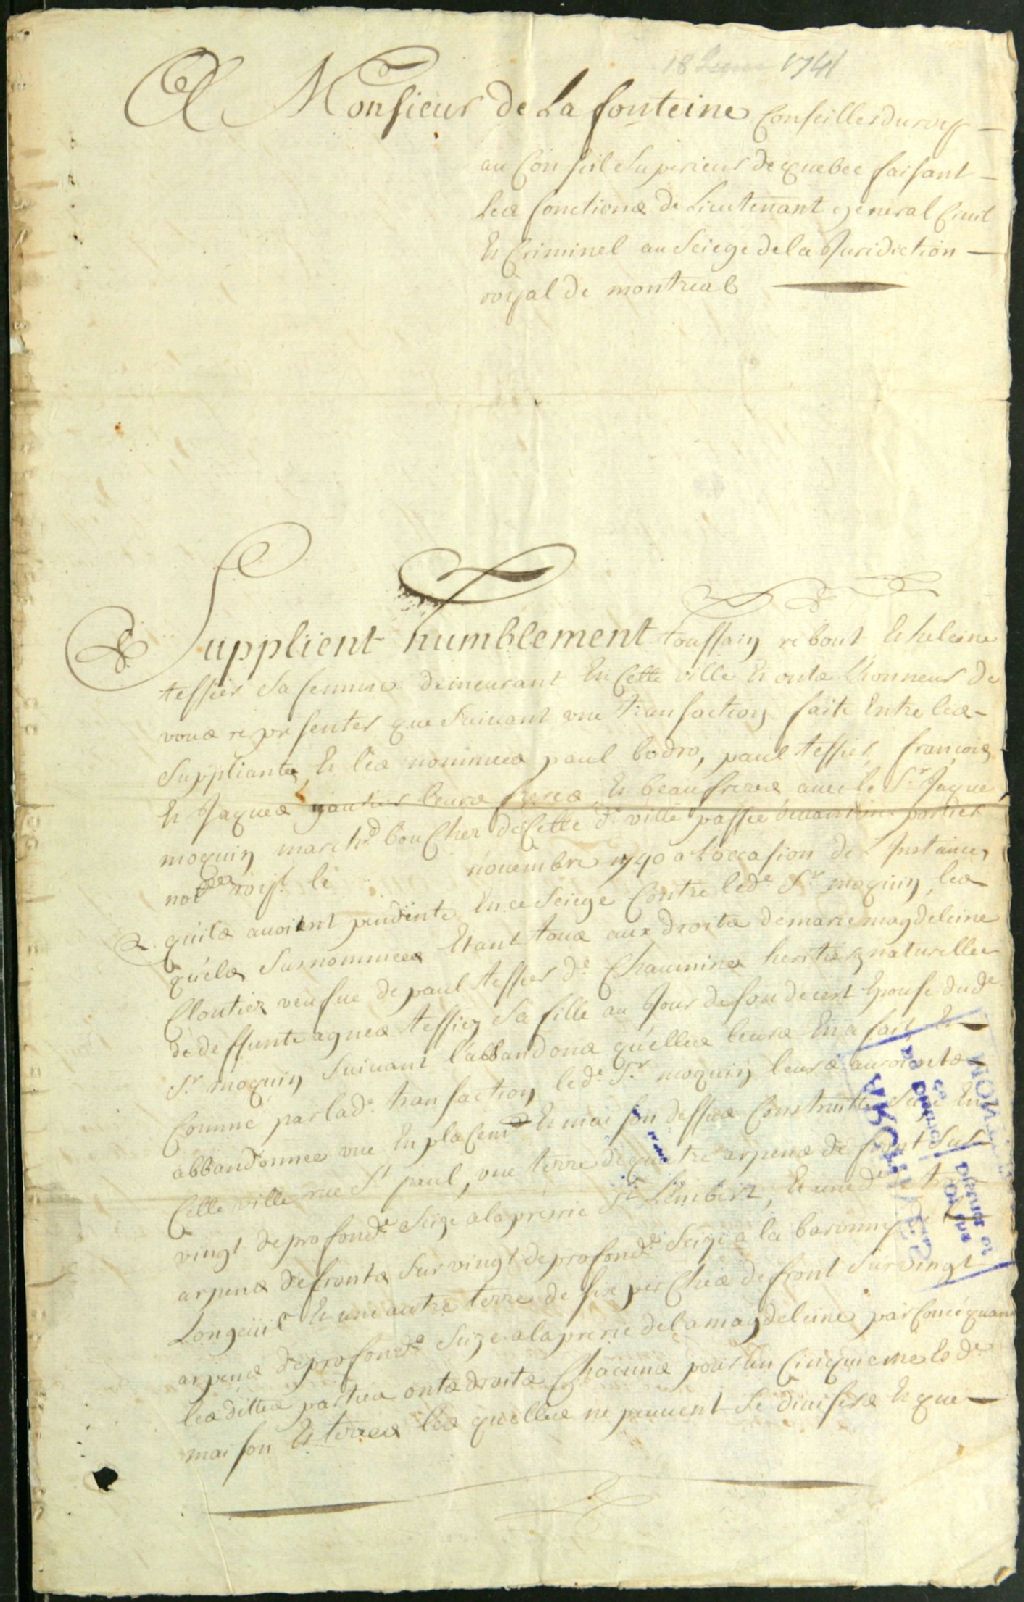 1741
A Monsieur de La fonteine Conseiller du roy
au Conseil Superieur de quebec faisant
Les fonctions de Lieutenant general Civil
Et Criminel au Seiege de la Juridiction
royal de montreal
Supplient humblement toussain ribout Et heleine
tessier Sa femme demeurant En Cette ville Et onts Lhonneur de
vous representer que Suivant une transaction faite Entre les
Suppliants Et les nommees paul bodro, paul tessier, françois
Et Jaques gautier leurs freres Et beaufreres avec le Sr Jaque
moquin march.d bouCher de Cette d.e ville passee
not.res roy.x le novembre 1740 a Loccasion de Linstance
quils avoient pendente En ce Seiege Contre led.e Sr moquin, les
quels Surnommees Etant tous aux droits de marie magdeleine
Cloutier veufve de paul tessier d.e Chaumine heritiere naturelle
de deffunte agnes tessier Sa fille au Jour de son deces Epouse dud.e
Sr moquin Suivant l'abbandons qu'elle leurs En a fait Et
Comme par lad.e transaction led.e Sr moquin leurs auroit
abbandonnee une Emplacem.t Et maison dessus Construitte Size En
Cette ville rue St paul, une terre de quatre arpens de front Sur
vingt de profond.r Seize a la prerie St Lembert, Et une d.e
arpens de fronts Sur vingt de profond.r Seize a la baronny
Longeüil Et une autre terre de six perChes de front Sur vingt
arpens de profond.r Seize a la prerie de la magdeleine par Concequant
les dittes parties onts droits Chacuns pour un Cinquieme le d.e
maison Et terres les quelles ne peuvent Se divisers Et que
ARCHIVES